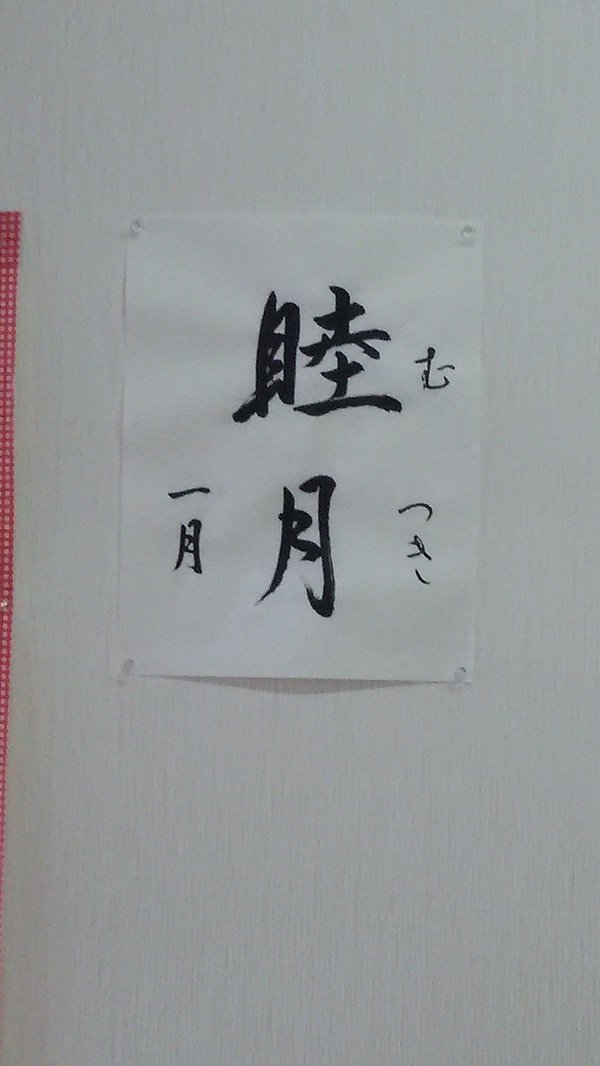 むつき
睦月
一月